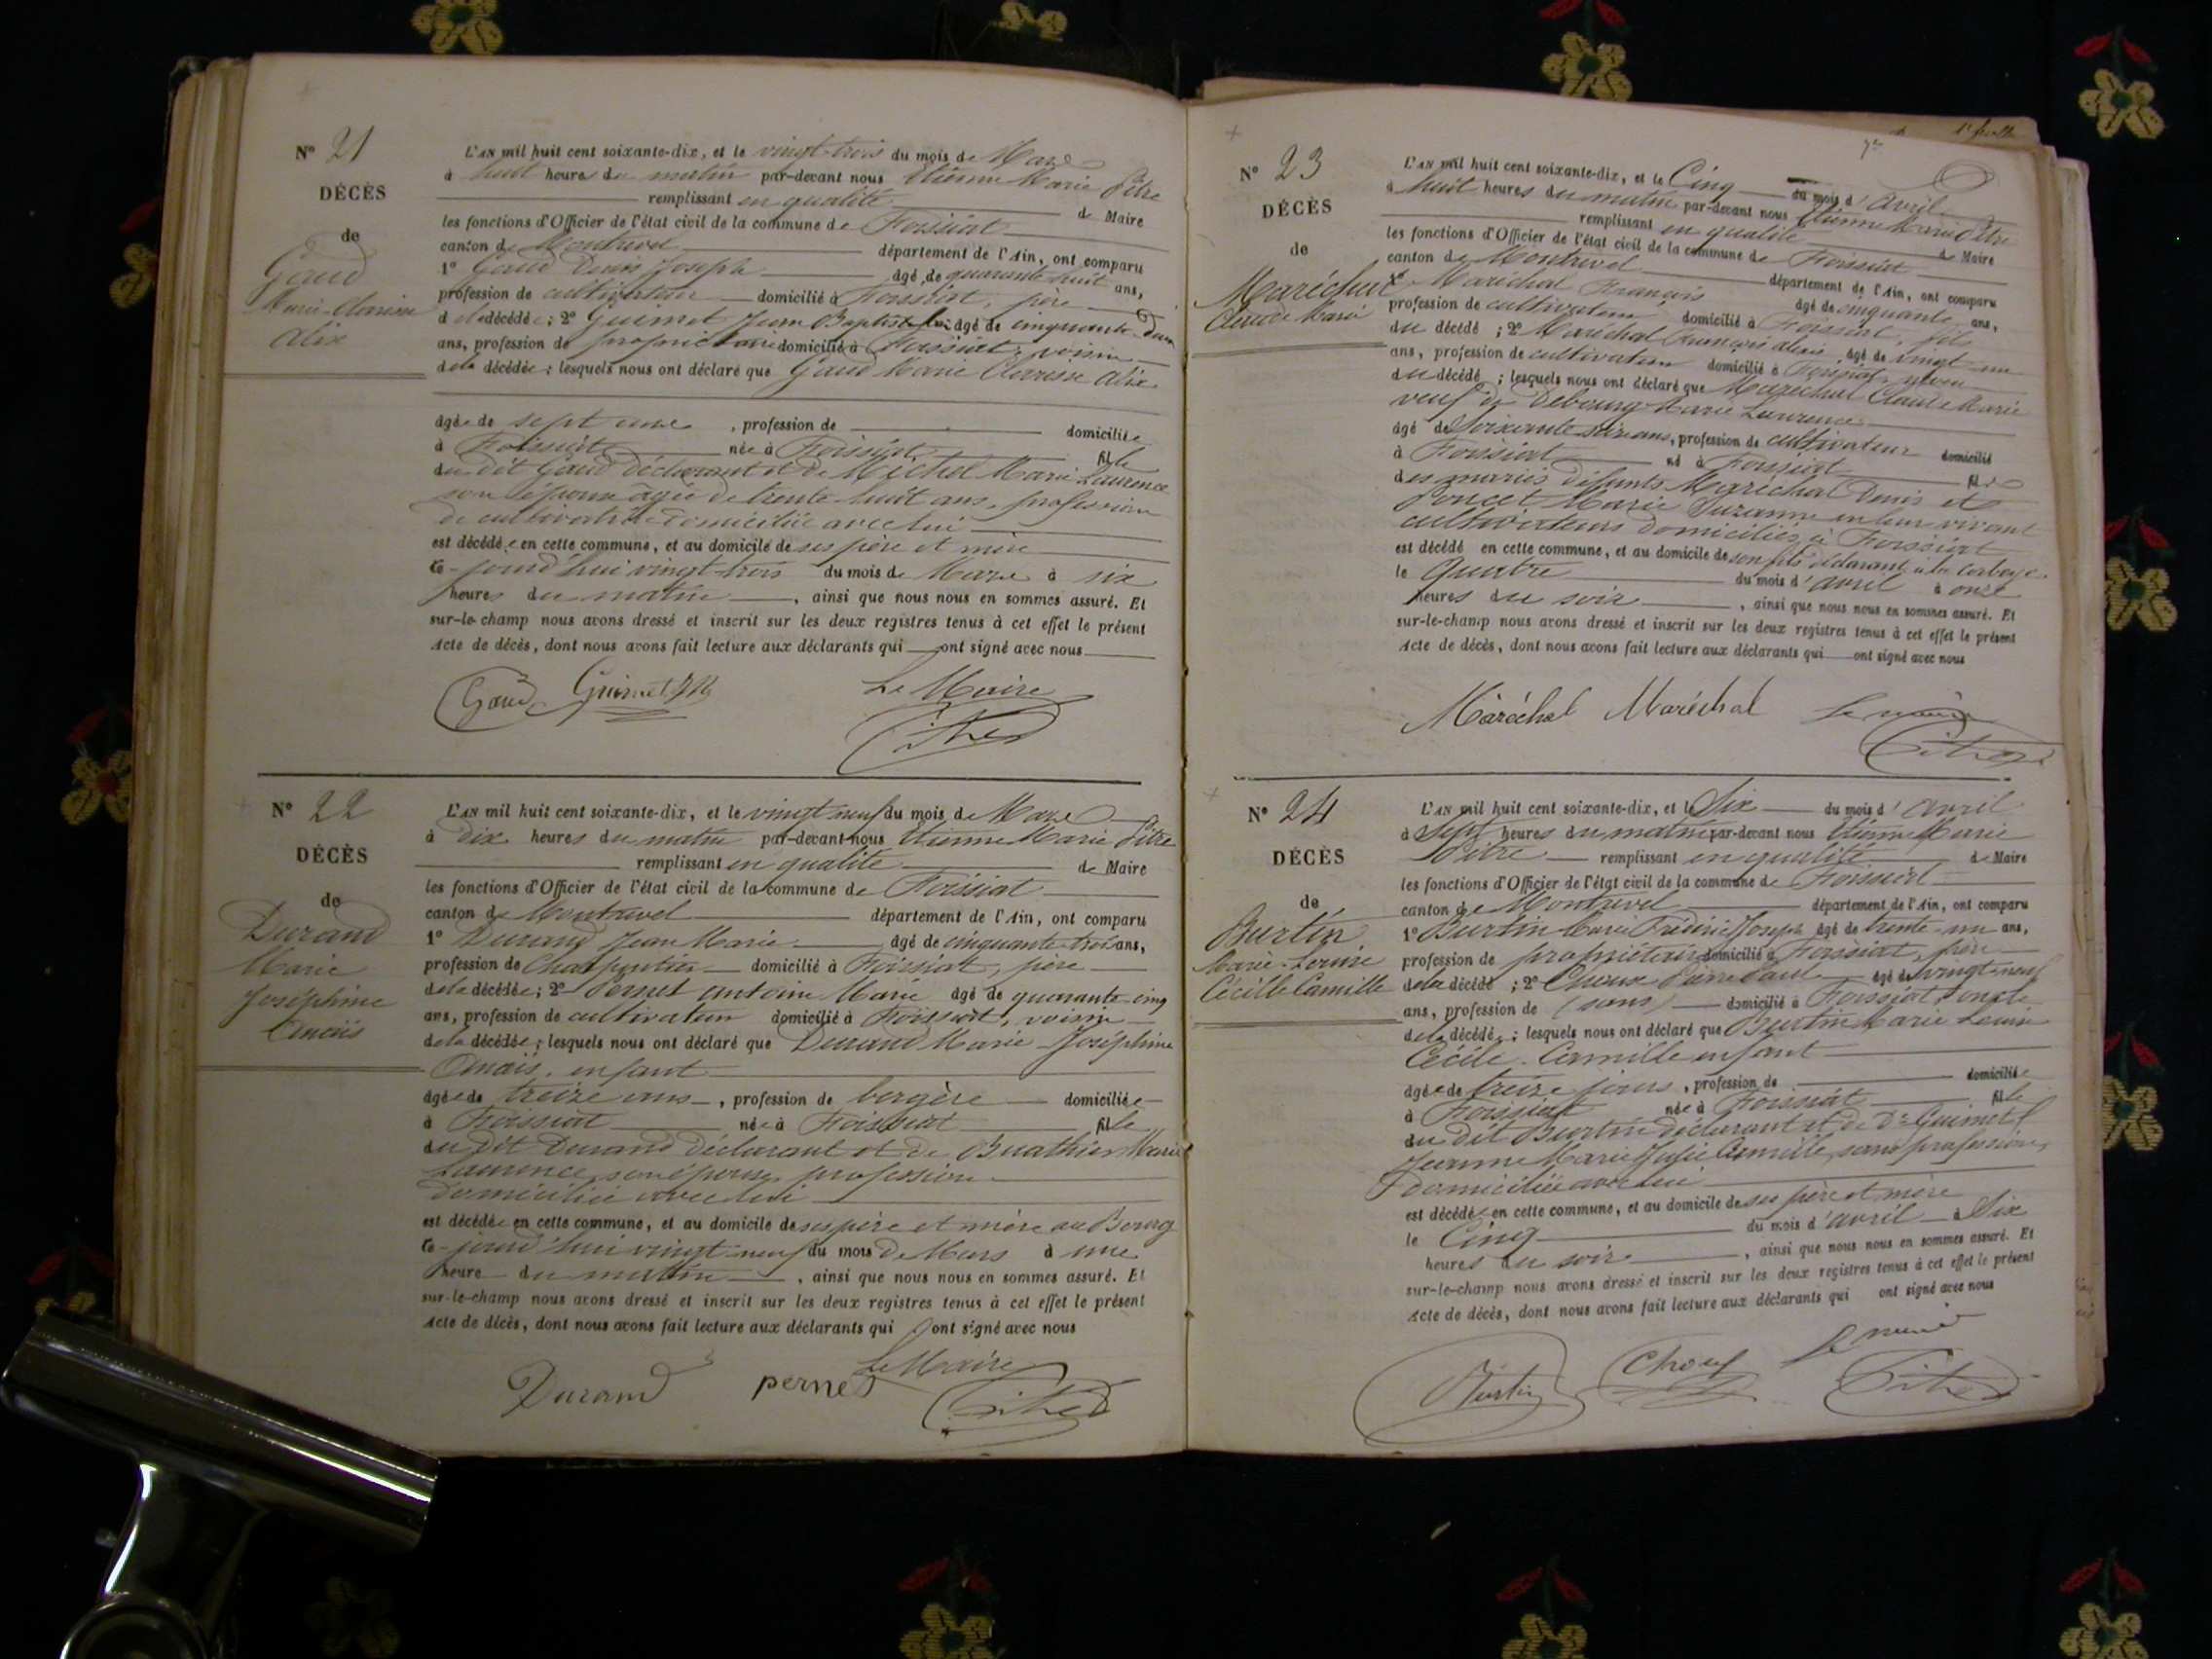 N° 21
DÉCÈS
de
Gaud
Marie Clarisse
Alix
L'AN mil huit cent soixante-dix, et le vingt trois du mois de Mars
à huit heures du matin par-devant nous Etienne Marie Pitre
remplissant en qualité de Maire
les fonctions d'Officier de l'état civil de la commune de Foissiat
canton de Montrevel département de l'Ain, ont comparu
1° Gaud Denis Joseph âgé de quarante huit ans,
profession de cultivateur domicilié à Foissiat, père
de la décédée; 2° Guimet Jean Baptiste âgé de cinquante deux
ans, profession de propriétaire domicilié à Foissiat, voisin
de la décédée; lesquels nous ont déclaré que Gaud Marie Clarisse Alix
âgée de sept ans, profession de domiciliée
à Foissiat née à Foissiat fille
du dit Gaud déclarant et de Michel Marie Laurence
son épouse âgée de trente-huit ans, profession
de cultivatrice domiciliée avec lui
est décédée en cette commune, et au domicile de ses père et mère
ce-jourd'hui vingt trois du mois de Mars à six
heures du matin, ainsi que nous nous en sommes assuré. Et
sur-le-champ nous avons dressé et inscrit sur les deux registres tenus à cet effet le présent
Acte de décès, dont nous avons fait lecture aux déclarants qui ont signé avec nous
Gaud Guimet Le Maire
Pitre
N° 22
DÉCÈS
de
Durand
Marie
Joséphine
Anaïs
L'AN mil huit cent soixante-dix, et le vingt neuf du mois de Mars
à dix heures du matin par-devant nous Etienne Marie Pitre
remplissant en qualité de Maire
les fonctions d'Officier de l'état civil de la commune de Foissiat
canton de Montrevel département de l'Ain, ont comparu
1° Durand Jean Marie âgé de cinquante-trois ans,
profession de Charpentier domicilié à Foissiat, père
de la décédée; 2° Pernet Antoine Marie âgé de quarante-cinq
ans, profession de cultivateur domicilié à Foissiat, voisin
de la décédée; lesquels nous ont déclaré que Durand Marie Joséphine
Anaïs, enfant
âgée de treize ans, profession de bergère domiciliée
à Foissiat née à Foissiat fille
du dit Durand déclarant et de Buathier Marie
Laurence son épouse, profession
domiciliée avec lui
est décédée en cette commune, et au domicile de ses père et mère au Bourg
ce-jourd'hui vingt-neuf du mois de Mars à une
heure du matin, ainsi que nous nous en sommes assuré. Et
sur-le-champ nous avons dressé et inscrit sur les deux registres tenus à cet effet le présent
Acte de décès, dont nous avons fait lecture aux déclarants qui ont signé avec nous
Durand pernet Le Maire
Pitre
N° 23
DÉCÈS
de
Maréchal
Claude Marie
L'AN mil huit cent soixante-dix, et le Cinq du mois d'Avril
à huit heures du matin par-devant nous Etienne Marie Pitre
remplissant en qualité de Maire
les fonctions d'Officier de l'état civil de la commune de Foissiat
canton de Montrevel département de l'Ain, ont comparu
1° Maréchal François âgé de cinquante ans,
profession de cultivateur domicilié à Foissiat, fils
du décédé; 2° Maréchal François Alexis âgé de vingt-un
ans, profession de cultivateur domicilié à Foissiat, neveu
du décédé; lesquels nous ont déclaré que Maréchal Claude Marie
veuf de Debourg Marie Laurence
âgé de Soixante ans, profession de cultivateur domicilié
à Foissiat né à Foissiat fils
des mariés défunts Maréchal Denis et
Poncet Marie Suzanne en leur vivant
cultivateurs domiciliés à Foissiat
est décédé en cette commune, et au domicile de son fils déclarant
le Quatre du mois d'avril à onze
heures du soir, ainsi que nous nous en sommes assuré. Et
sur-le-champ nous avons dressé et inscrit sur les deux registres tenus à cet effet le présent
Acte de décès, dont nous avons fait lecture aux déclarants qui ont signé avec nous
Maréchal Maréchal Le maire
Pitre
N° 24
DÉCÈS
de
Burtin
Marie-Louise
Cécille Camille
L'AN mil huit cent soixante-dix, et le Six du mois d'avril
à Sept heures du matin par-devant nous Etienne Marie
Pitre remplissant en qualité de Maire
les fonctions d'Officier de l'état civil de la commune de Foissiat
canton de Montrevel département de l'Ain, ont comparu
1° Burtin Marie Frédéric Joseph âgé de trente-un ans,
profession de propriétaire domicilié à Foissiat, père
de la décédé; 2° Pierre Paul âgé de vingt-neuf
ans, profession de (sans) domicilié à Foissiat, oncle
de la décédée; lesquels nous ont déclaré que Burtin Marie Louise
Cécile Camille enfant
âgée de treize jours, profession de domiciliée
à Foissiat née à Foissiat fille
du dit Burtin déclarant et de De Guimet
Jeanne Marie Julie Camille, sans profession,
domiciliée avec lui
est décédée en cette commune, et au domicile de ses père et mère
le Cinq du mois d'avril à Six
heures du soir, ainsi que nous nous en sommes assuré. Et
sur-le-champ nous avons dressé et inscrit sur les deux registres tenus à cet effet le présent
Acte de décès, dont nous avons fait lecture aux déclarants qui ont signé avec nous
Burtin Le maire
Pitre